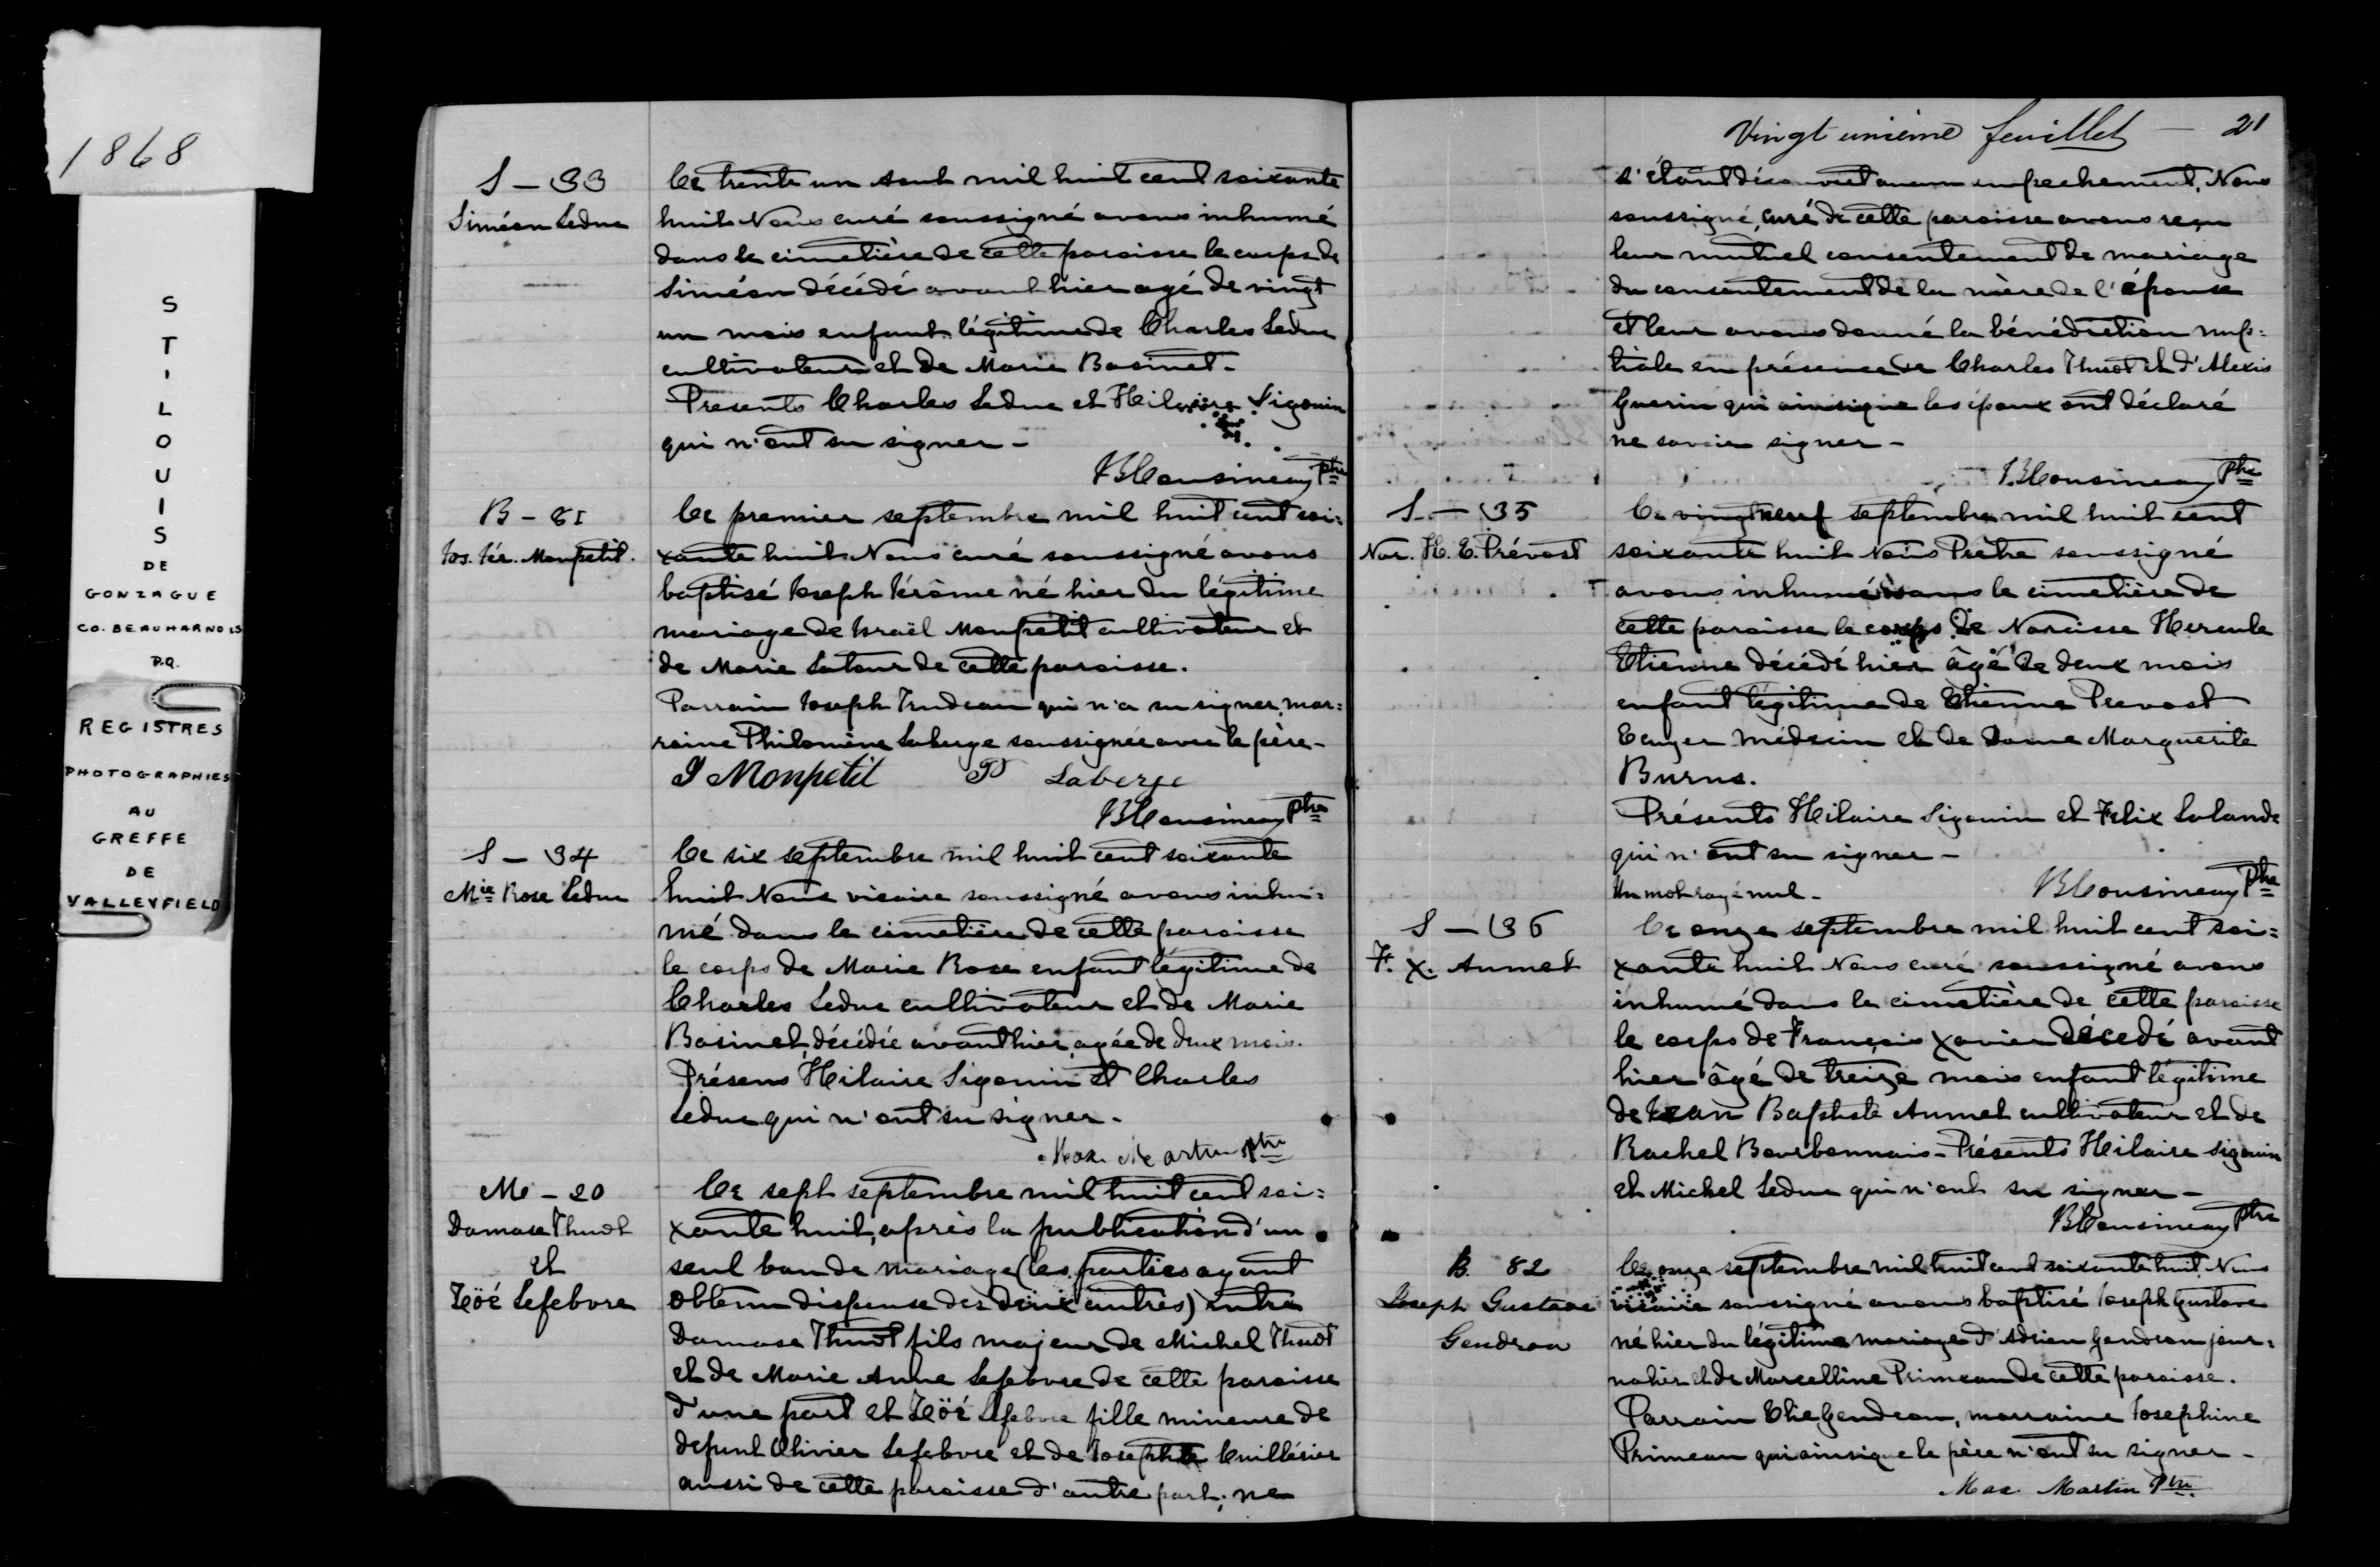 1868
ST. LOUIS
DE
GONZAGUE
CO. BEAUHARNOIS
P.Q.
REGISTRES
PHOTOGRAPHIES
AU
GREFFE
DE
VALLEYFIELD
S - 33
Siméon Leduc
Ce trente un Aout mil huit cent soixante
huit Nous curé soussigné avons inhumé
dans le cimetière de cette paroisse le corps de
Siméon décédé avant hier agé de vingt
un mois enfant légitime de Charles Leduc
cultivateur et de Marie Basinet -
Presents Charles Leduc et Hilaire Sigouin
qui n'ont su signer -
Cousineau Ptre
B - 81
Jos. Jér. Monpetit.
Ce premier septembre mil huit cent soi=
xante huit Nous curé soussigné avons
baptisé Joseph Jérôme né hier du légitime
mariage de Israël Monpetit cultivateur et
de Marie Latour de cette paroisse.
Parrain Joseph Trudeau qui n'a su signer, mar=
raine Philomène Laberge soussignée avec le père -
I Monpetit P Laberge
Cousineau Ptre
S - 34
Mie Rose Leduc
Ce six septembre mil huit cent soixante
huit Nous vicaire soussigné avons inhu=
mé dans le cimetière de cette paroisse
le corps de Marie Rose enfant légitime de
Charles Leduc cultivateur et de Marie
Basinet, décédée avant hier, agée de deux mois.
Présens Hilaire Sigouin et Charles
Leduc qui n'ont su signer -
Max. Martin Ptre
M - 20
Damase Thuot
et
Zöé Lefebvre
Ce sept septembre mil huit cent soi=
xante huit, après la publication d'un
seul ban de mariage (les parties ayant
obtenu dispense des deux autres) entre
Damase Thuot fils majeur de Michel Thuot
et de Marie Anne Lefebvre de cette paroisse
d'une part et Zöé Lefebvre fille mineure de
defunt Olivier Lefebvre et de Josephte Cuillérier
aussi de cette paroisse d'autre part; ne
Vingt unième feuillet - 21
s'étant découvert aucun empechement, Nous
soussigné, curé de cette paroisse avons reçu
leur mutuel consentement de mariage
du consentement de la mère de l'épouse
et leur avons donné la bénédiction nup=
tiale en présence de Charles Thuot et d'Alexis
Guerin qui ainsi que les époux ont déclaré
ne savoir signer -
Cousineau Ptre
S - 35
Nar. H. E. Prévost
Ce vingt neuf septembre mil huit cent
soixante huit Nous Prêtre soussigné
avons inhumé dans le cimetière de
cette paroisse le corps de Narcisse Hercule
Etienne décédé hier âgé de deux mois
enfant légitime de Etienne Prevost
Ecuyer Médecin et de Dame Marguerite
Burns.
Présents Hilaire Sigouin et Felix Lalande
qui n'ont su signer -
Un mot rayé nul -
Cousineau Ptre
S - 36
F. X. Aumet
Ce onze septembre mil huit cent soi=
xante huit Nous curé soussigné avons
inhumé dans le cimetière de cette paroisse
le corps de François Xavier décedé avant
hier âgé de treize mois enfant légitime
de Jean Baptiste Aumet cultivateur et de
Rachel Bourbonnais - Présents Hilaire Sigouin
et Michel Leduc qui n'ont su signer -
Cousineau Ptre
B. 82
Joseph Gustave
Gendron
Ce onze septembre mil huit cent soixante huit Nous
vicaire soussigné avons baptisé Joseph Gustave
né hier du légitime mariage d'Adrien Gendron jour=
nalier et de Marcelline Primeau de cette paroisse.
Parrain Elie Gendron, marraine Josephine
Primeau qui ainsi que le père n'ont su signer -
Max. Martin Ptre